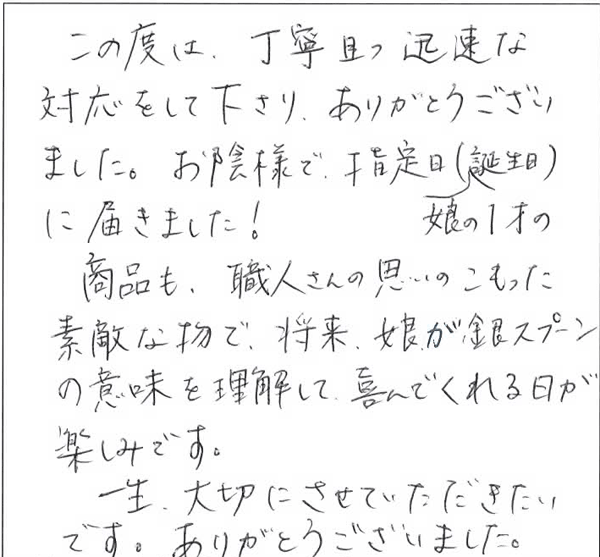 この度は、丁寧且つ迅速な
対応をして下さり、ありがとうござい
ました。お陰様で、指定日(誕生日)
に届きました！
娘の1才の
商品も、職人さんの思いのこもった
素敵な物で、将来、娘が銀スプーン
の意味を理解して、喜んでくれる日が
楽しみです。
一生、大切にさせていただきたい
です。ありがとうございました。